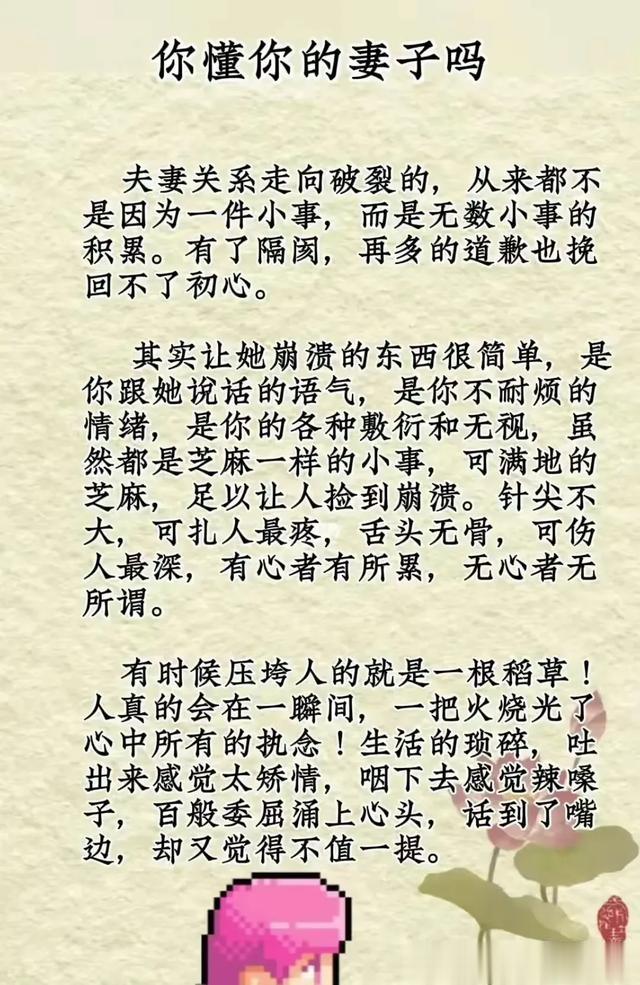 你懂你的妻子吗
夫妻关系走向破裂的，从来都不
是因为一件小事，而是无数小事的
积累。有了隔阂，再多的道歉也挽
回不了初心。
其实让她崩溃的东西很简单，是
你跟她说话的语气，是你不耐烦的
情绪，是你的各种敷衍和无视，虽
然都是芝麻一样的小事，可满地的
芝麻，足以让人捡到崩溃。针尖不
大，可扎人最疼，舌头无骨，可伤
人最深，有心者有所累，无心者无
所谓。
有时候压垮人的就是一根稻草！
人真的会在一瞬间，一把火烧光了
心中所有的执念！生活的琐碎，吐
出来感觉太矫情，咽下去感觉辣嗓
子，百般委屈涌上心头，话到了嘴
边，却又觉得不值一提。